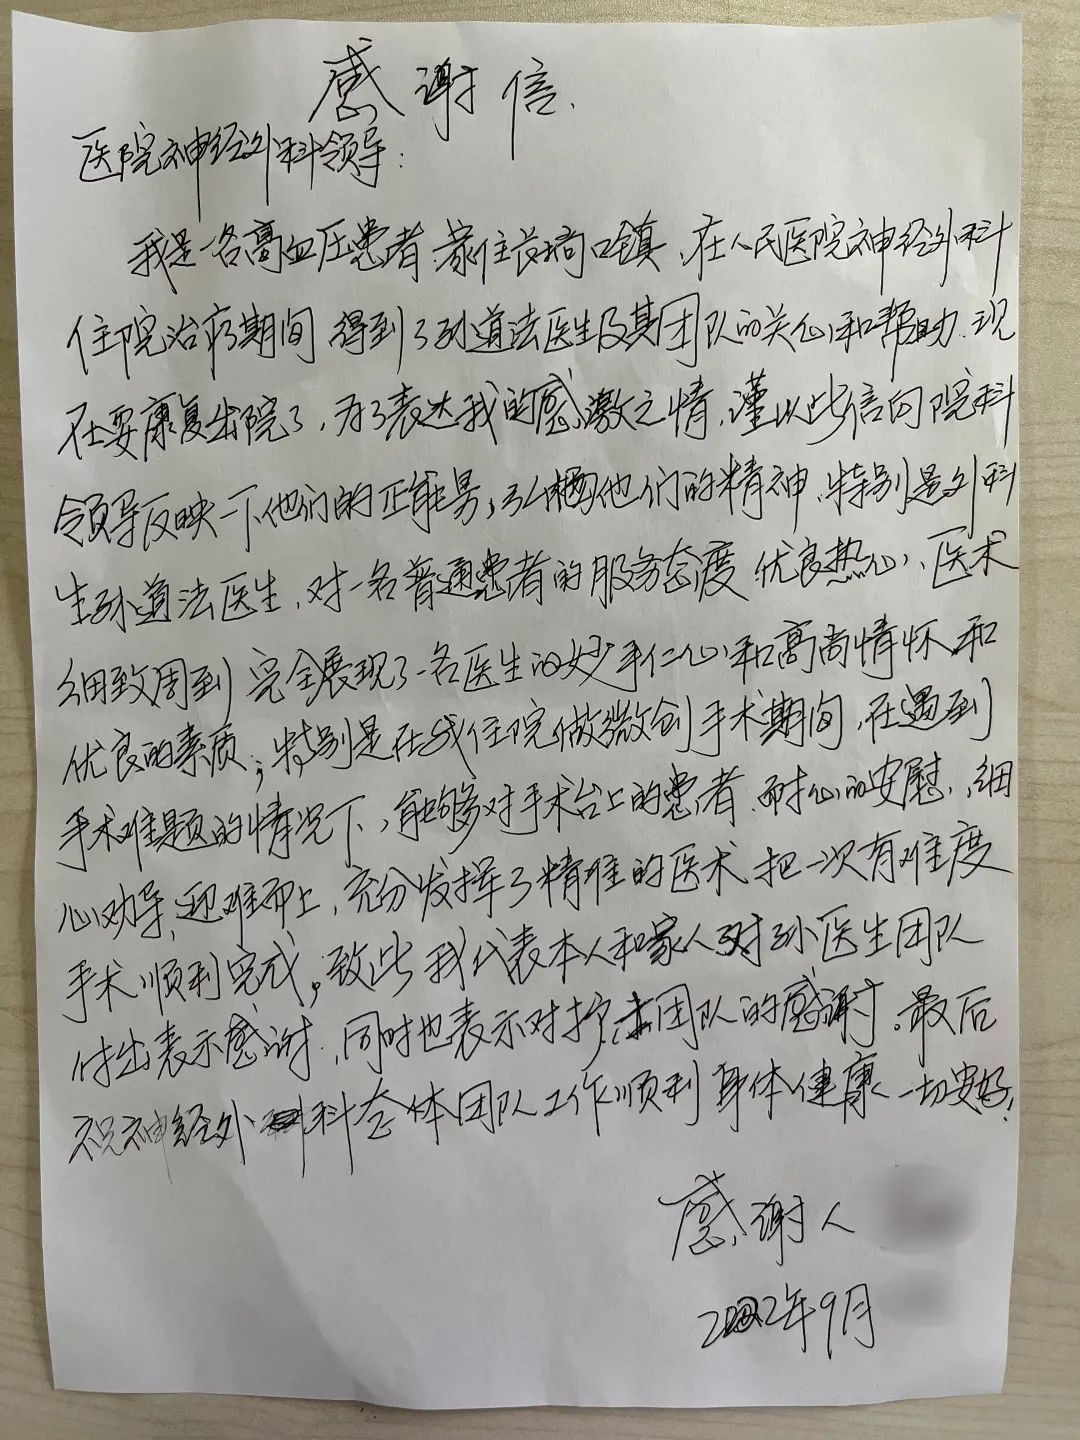 感谢信.
医院神经外科领导:
我是一名高血压患者.家住长埫口镇.在人民医院神经外科
住院治疗期间 得到了孙道法医生及其团队的关心和帮助.现
在要康复出院了,为了表达我的感激之情,谨以此信向院科
领导反映一下他们的正能量,弘扬他们的精神.特别是外科
生孙道法医生.对一名普通患者的服务态度 优良热心、医术
细致周到 完全展现了一名医生的妙手仁心和高尚情怀和
优良的素质;特别是在我住院做微创手术期间,在遇到
手术难题的情况下,能够对手术台上的患者.耐心的安慰.细
心劝导,迎难而上,充分发挥了精准的医术 把一次有难度
手术顺利完成,致此 我代表本人和家人对孙医生团队
付出表示感谢.同时也表示对护士团队的感谢。最后
祝神经外科全体团队工作顺利 身体健康 一切安好!
感谢人
2022年9月